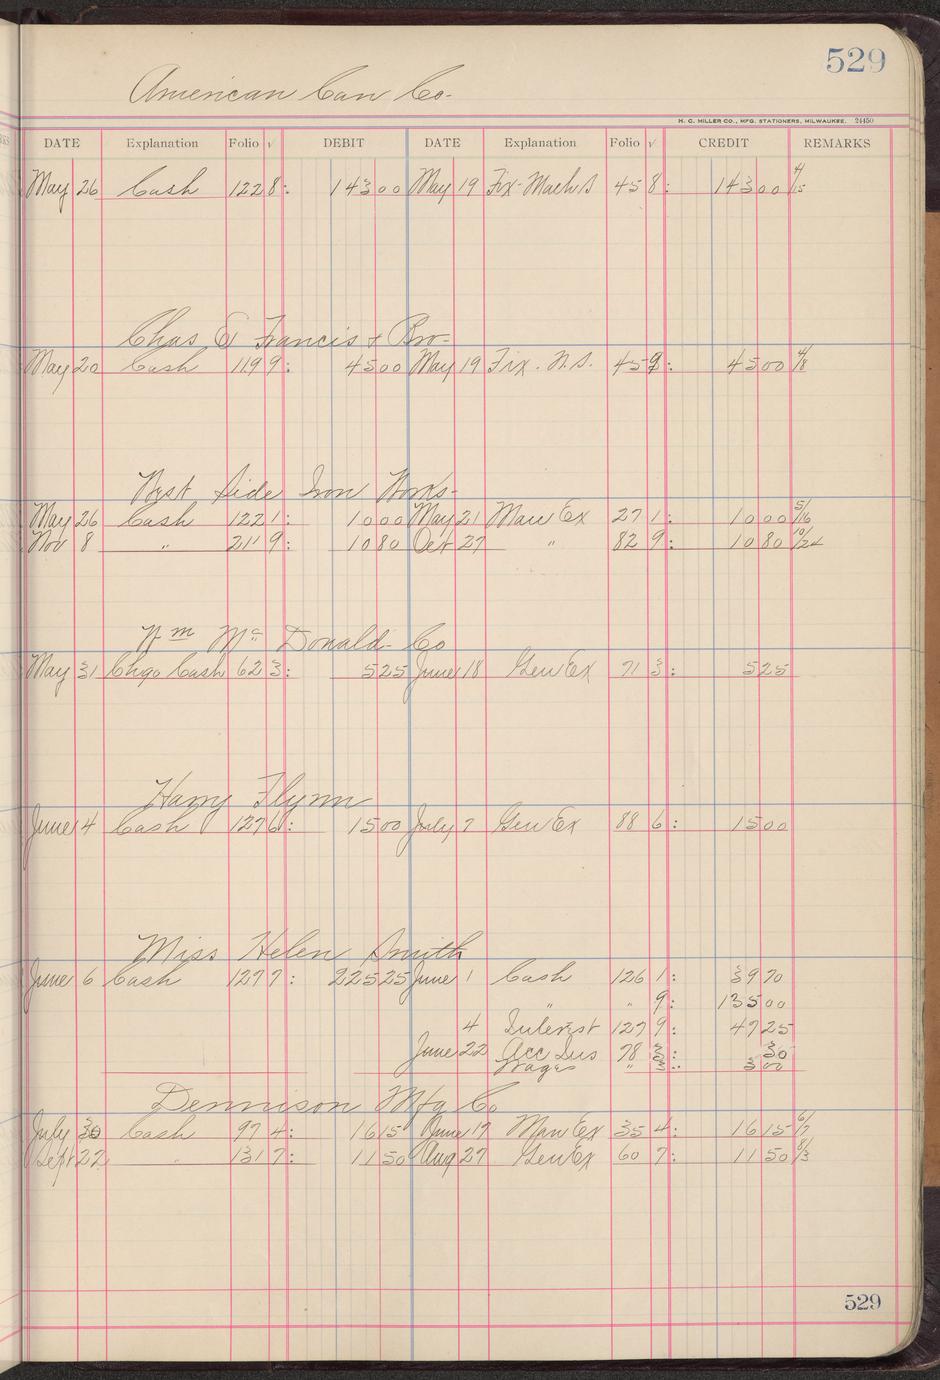 529
American Can Co-
H. C. MILLER CO., MFG. STATIONERS, MILWAUKEE. 24450
DATE Explanation Folio √ DEBIT DATE Explanation Folio √ CREDIT REMARKS
May 26 Cash 122 8: 143 00 May 19 Fix-Mach S 45 8: 143 00 4/15
Chas E Francis & Bro-
May 20 Cash 119 9: 45 00 May 19 Fix. N.S. 45 9: 45 00 4/18
West Side Iron Works-
May 26 Cash 122 1: 10 00 May 21 Man Ex 27 1: 10 00 5/16
Nov 8 " 211 9: 10 80 Oct 27 " 82 9: 10 80 10/24
Wm Mc Donald- Co
May 31 Chgo Cash 62 3: 5 25 June 18 Gen Ex 71 3: 5 25
Harry Flynn
June 4 Cash 127 6: 15 00 July 7 Gen Ex 88 6: 15 00
Miss Helen Smith
June 6 Cash 127 7: 225 25 June 1 Cash 126 1: 39 70
" " 9: 135 00
4 Interest 127 9: 47 25
June 22 Acc Sus 78 3: 30
Wages " 3: 3 00
Dennison Mfg Co
July 30 Cash 97 4: 16 15 June 17 Man Ex 35 4: 16 15 6/7
Sept 22 " 131 7: 11 50 Aug 27 Gen Ex 60 7: 11 50 8/3
529